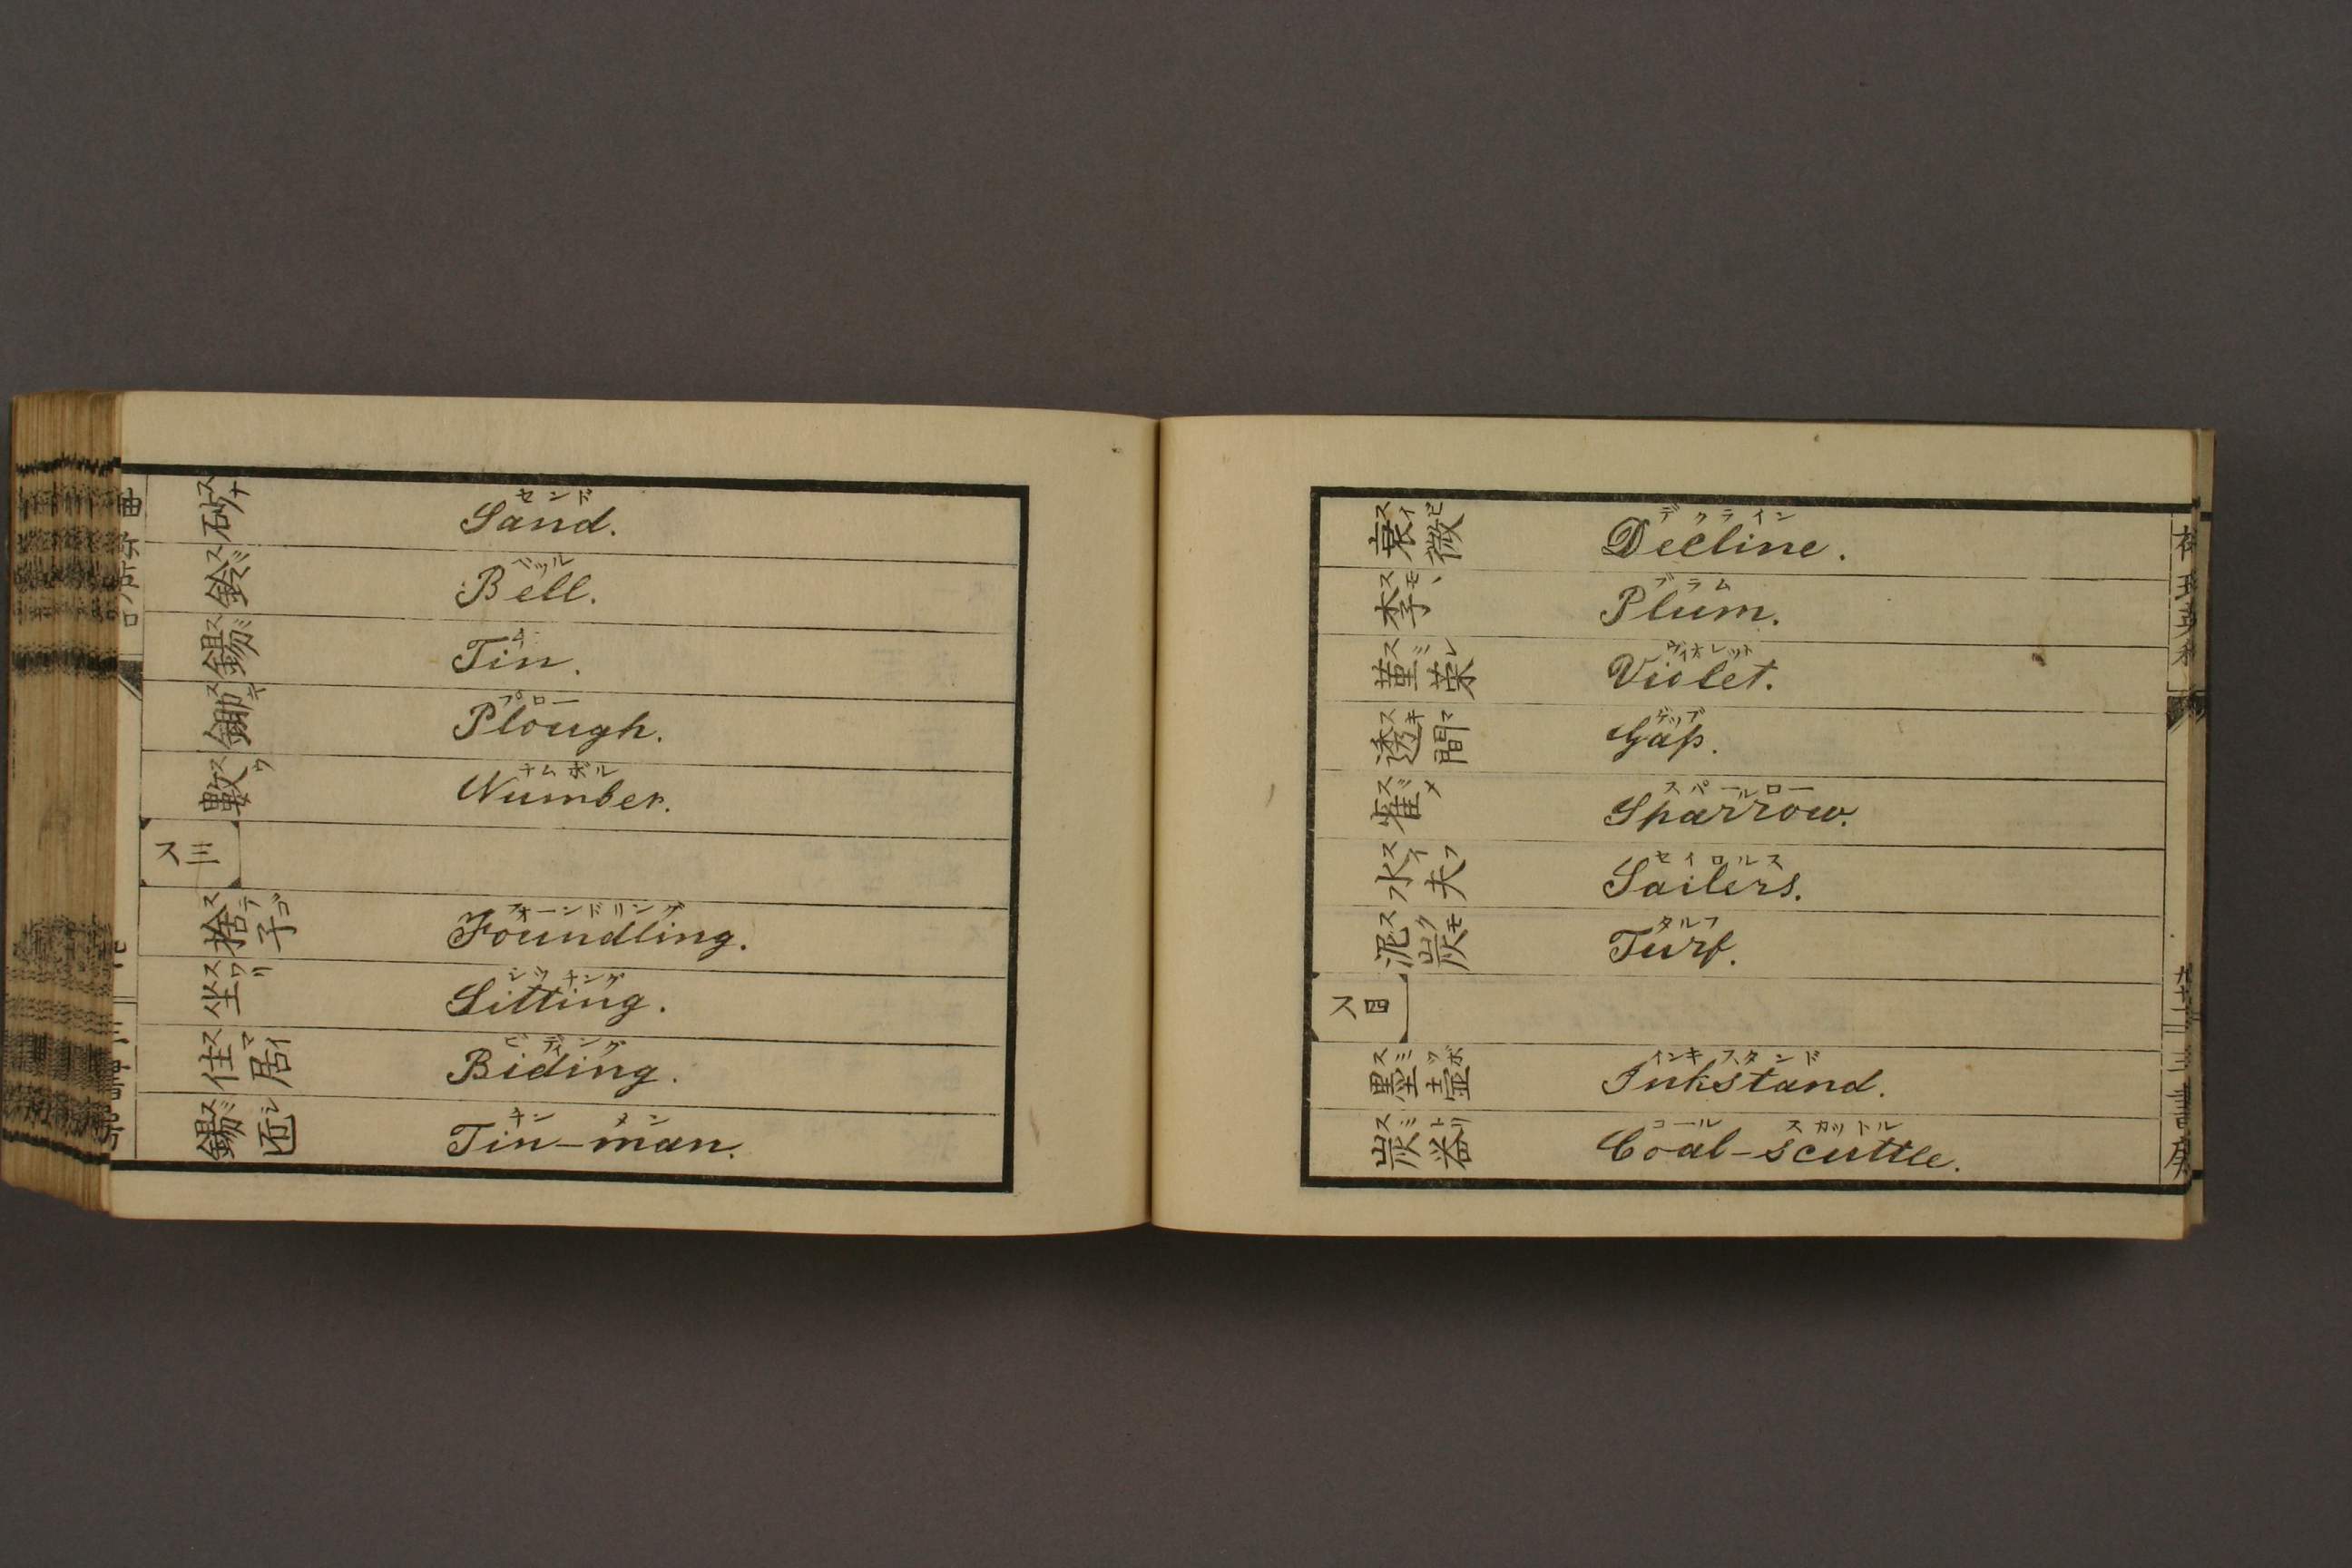 砂 スナ センド Sand.
鈴 スヾ ベツル Bell.
錫 スヾ Tin.
鋤 スキ プロー Plough.
數 スウ ナムボル Number.
ス三
捨子 ステゴ フォーンドリング Foundling.
坐 スワリ シッチング Sitting.
住居 スマイ ビディング Biding.
錫匠 スヾシ チンメン Tin-man.
衰微 スイビ デクライン Decline.
李 スモヽ プラム Plum.
菫菜 スミレ ヴィオレット Violet.
透間 スキマ ゲップ Gap.
雀 スヾメ スパールロー Sparrow.
水夫 スイフ セイロルス Sailers.
泥炭 スクモ タルフ Turf.
ス四
墨壺 スミツボ インキスタンド Inkstand.
炭斗 スミトリ コールスカットル Coal-scuttle.